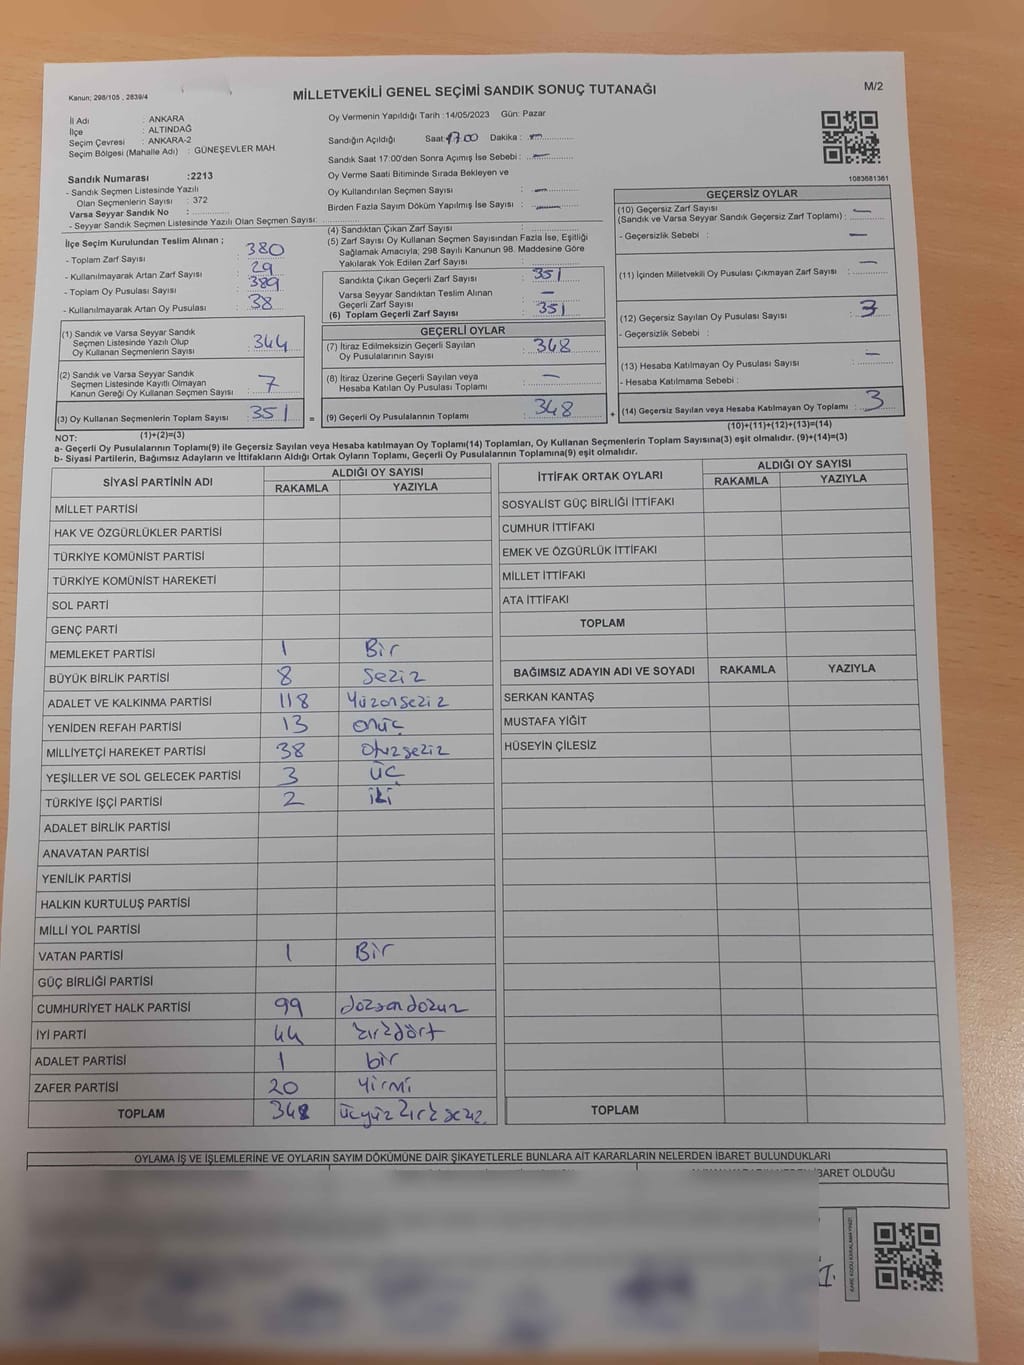 Kanun; 298/105 , 2839/4
MİLLETVEKİLİ GENEL SEÇİMİ SANDIK SONUÇ TUTANAĞI
M/2
İl Adı : ANKARA
İlçe : ALTINDAĞ
Seçim Çevresi : ANKARA-2
Seçim Bölgesi (Mahalle Adı) : GÜNEŞEVLER MAH.
Oy Vermenin Yapıldığı Tarih : 14/05/2023 Gün: Pazar
Sandığın Açıldığı Saat: 17:00 Dakika : —
Sandık Saat 17:00'den Sonra Açılmış İse Sebebi : —
Oy Verme Saati Bitiminde Sırada Bekleyen ve
Oy Kullandırılan Seçmen Sayısı : —
Birden Fazla Sayım Döküm Yapılmış İse Sayısı : —
1083681361
Sandık Numarası :2213
- Sandık Seçmen Listesinde Yazılı
Olan Seçmenlerin Sayısı : 372
Varsa Seyyar Sandık No :
- Seyyar Sandık Seçmen Listesinde Yazılı Olan Seçmen Sayısı:
İlçe Seçim Kurulundan Teslim Alınan ;
- Toplam Zarf Sayısı : 380
- Kullanılmayarak Artan Zarf Sayısı : 29
- Toplam Oy Pusulası Sayısı : 389
- Kullanılmayarak Artan Oy Pusulası : 38
(1) Sandık ve Varsa Seyyar Sandık
Seçmen Listesinde Yazılı Olup
Oy Kullanan Seçmenlerin Sayısı : 344
(2) Sandık ve Varsa Seyyar Sandık
Seçmen Listesinde Kayıtlı Olmayan
Kanun Gereği Oy Kullanan Seçmen Sayısı : 7
(3) Oy Kullanan Seçmenlerin Toplam Sayısı : 351
(1)+(2)=(3)
(4) Sandıktan Çıkan Zarf Sayısı :
(5) Zarf Sayısı Oy Kullanan Seçmen Sayısından Fazla İse, Eşitliği
Sağlamak Amacıyla; 298 Sayılı Kanunun 98. Maddesine Göre
Yakılarak Yok Edilen Zarf Sayısı :
Sandıkta Çıkan Geçerli Zarf Sayısı : 351
Varsa Seyyar Sandıktan Teslim Alınan
Geçerli Zarf Sayısı : —
(6) Toplam Geçerli Zarf Sayısı : 351
GEÇERLİ OYLAR
(7) İtiraz Edilmeksizin Geçerli Sayılan
Oy Pusulalarının Sayısı : 348
(8) İtiraz Üzerine Geçerli Sayılan veya
Hesaba Katılan Oy Pusulası Toplamı : —
= (9) Geçerli Oy Pusulalarının Toplamı : 348
GEÇERSİZ OYLAR
(10) Geçersiz Zarf Sayısı
(Sandık ve Varsa Seyyar Sandık Geçersiz Zarf Toplamı) : —
- Geçersizlik Sebebi : —
(11) İçinden Milletvekili Oy Pusulası Çıkmayan Zarf Sayısı : —
(12) Geçersiz Sayılan Oy Pusulası Sayısı : 3
- Geçersizlik Sebebi :
(13) Hesaba Katılmayan Oy Pusulası Sayısı : —
- Hesaba Katılmama Sebebi :
+ (14) Geçersiz Sayılan veya Hesaba Katılmayan Oy Toplamı : 3
(10)+(11)+(12)+(13)=(14)
NOT:
a- Geçerli Oy Pusulalarının Toplamı(9) ile Geçersiz Sayılan veya Hesaba katılmayan Oy Toplamı(14) Toplamları, Oy Kullanan Seçmenlerin Toplam Sayısına(3) eşit olmalıdır. (9)+(14)=(3)
b- Siyasi Partilerin, Bağımsız Adayların ve İttifakların Aldığı Ortak Oyların Toplamı, Geçerli Oy Pusulalarının Toplamına(9) eşit olmalıdır.
SİYASİ PARTİNİN ADI ALDIĞI OY SAYISI
RAKAMLA YAZIYLA
MİLLET PARTİSİ
HAK VE ÖZGÜRLÜKLER PARTİSİ
TÜRKİYE KOMÜNİST PARTİSİ
TÜRKİYE KOMÜNİST HAREKETİ
SOL PARTİ
GENÇ PARTİ
MEMLEKET PARTİSİ 1 Bir
BÜYÜK BİRLİK PARTİSİ 8 Sekiz
ADALET VE KALKINMA PARTİSİ 118 Yüzonsekiz
YENİDEN REFAH PARTİSİ 13 onüç
MİLLİYETÇİ HAREKET PARTİSİ 38 otuzsekiz
YEŞİLLER VE SOL GELECEK PARTİSİ 3 üç
TÜRKİYE İŞÇİ PARTİSİ 2 iki
ADALET BİRLİK PARTİSİ
ANAVATAN PARTİSİ
YENİLİK PARTİSİ
HALKIN KURTULUŞ PARTİSİ
MİLLİ YOL PARTİSİ
VATAN PARTİSİ 1 Bir
GÜÇ BİRLİĞİ PARTİSİ
CUMHURİYET HALK PARTİSİ 99 doksandokuz
İYİ PARTİ 44 kırkdört
ADALET PARTİSİ 1 bir
ZAFER PARTİSİ 20 Yirmi
TOPLAM 348 üçyüzkırksekiz
İTTİFAK ORTAK OYLARI ALDIĞI OY SAYISI
RAKAMLA YAZIYLA
SOSYALİST GÜÇ BİRLİĞİ İTTİFAKI
CUMHUR İTTİFAKI
EMEK VE ÖZGÜRLÜK İTTİFAKI
MİLLET İTTİFAKI
ATA İTTİFAKI
TOPLAM
BAĞIMSIZ ADAYIN ADI VE SOYADI RAKAMLA YAZIYLA
SERKAN KANTAŞ
MUSTAFA YİĞİT
HÜSEYİN ÇİLESİZ
TOPLAM
OYLAMA İŞ VE İŞLEMLERİNE VE OYLARIN SAYIM DÖKÜMÜNE DAİR ŞİKAYETLERLE BUNLARA AİT KARARLARIN NELERDEN İBARET BULUNDUKLARI
İBARET OLDUĞU
KARE KODU KARALAMAYINIZ!